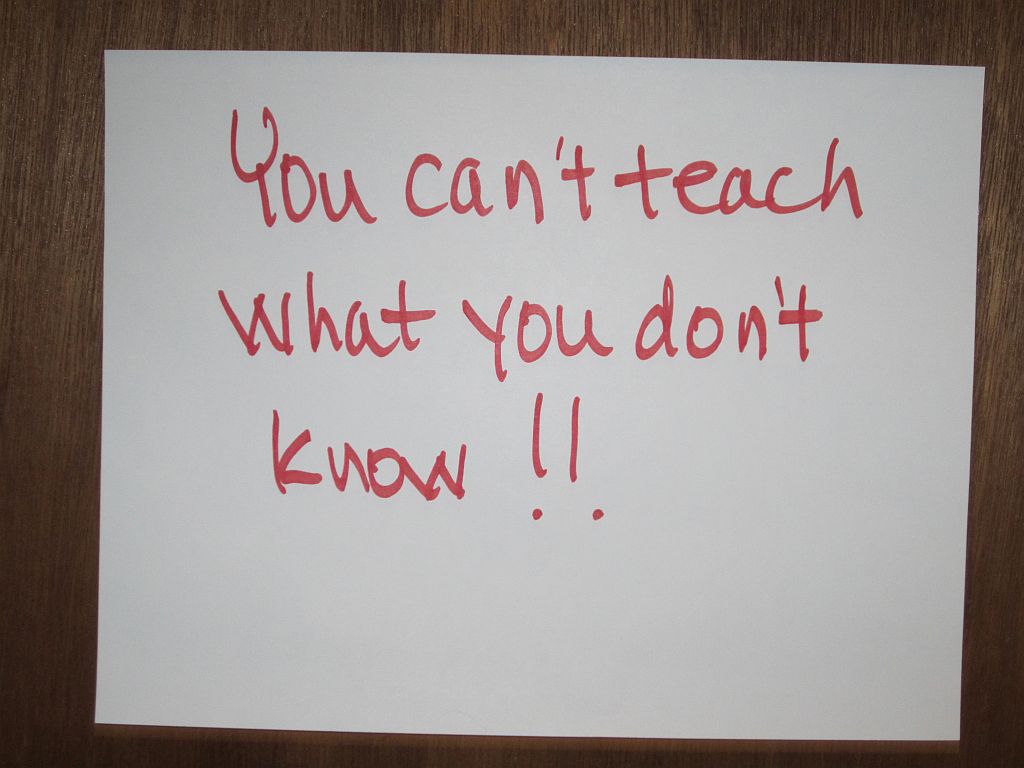 You can't teach
what you don't
know !!